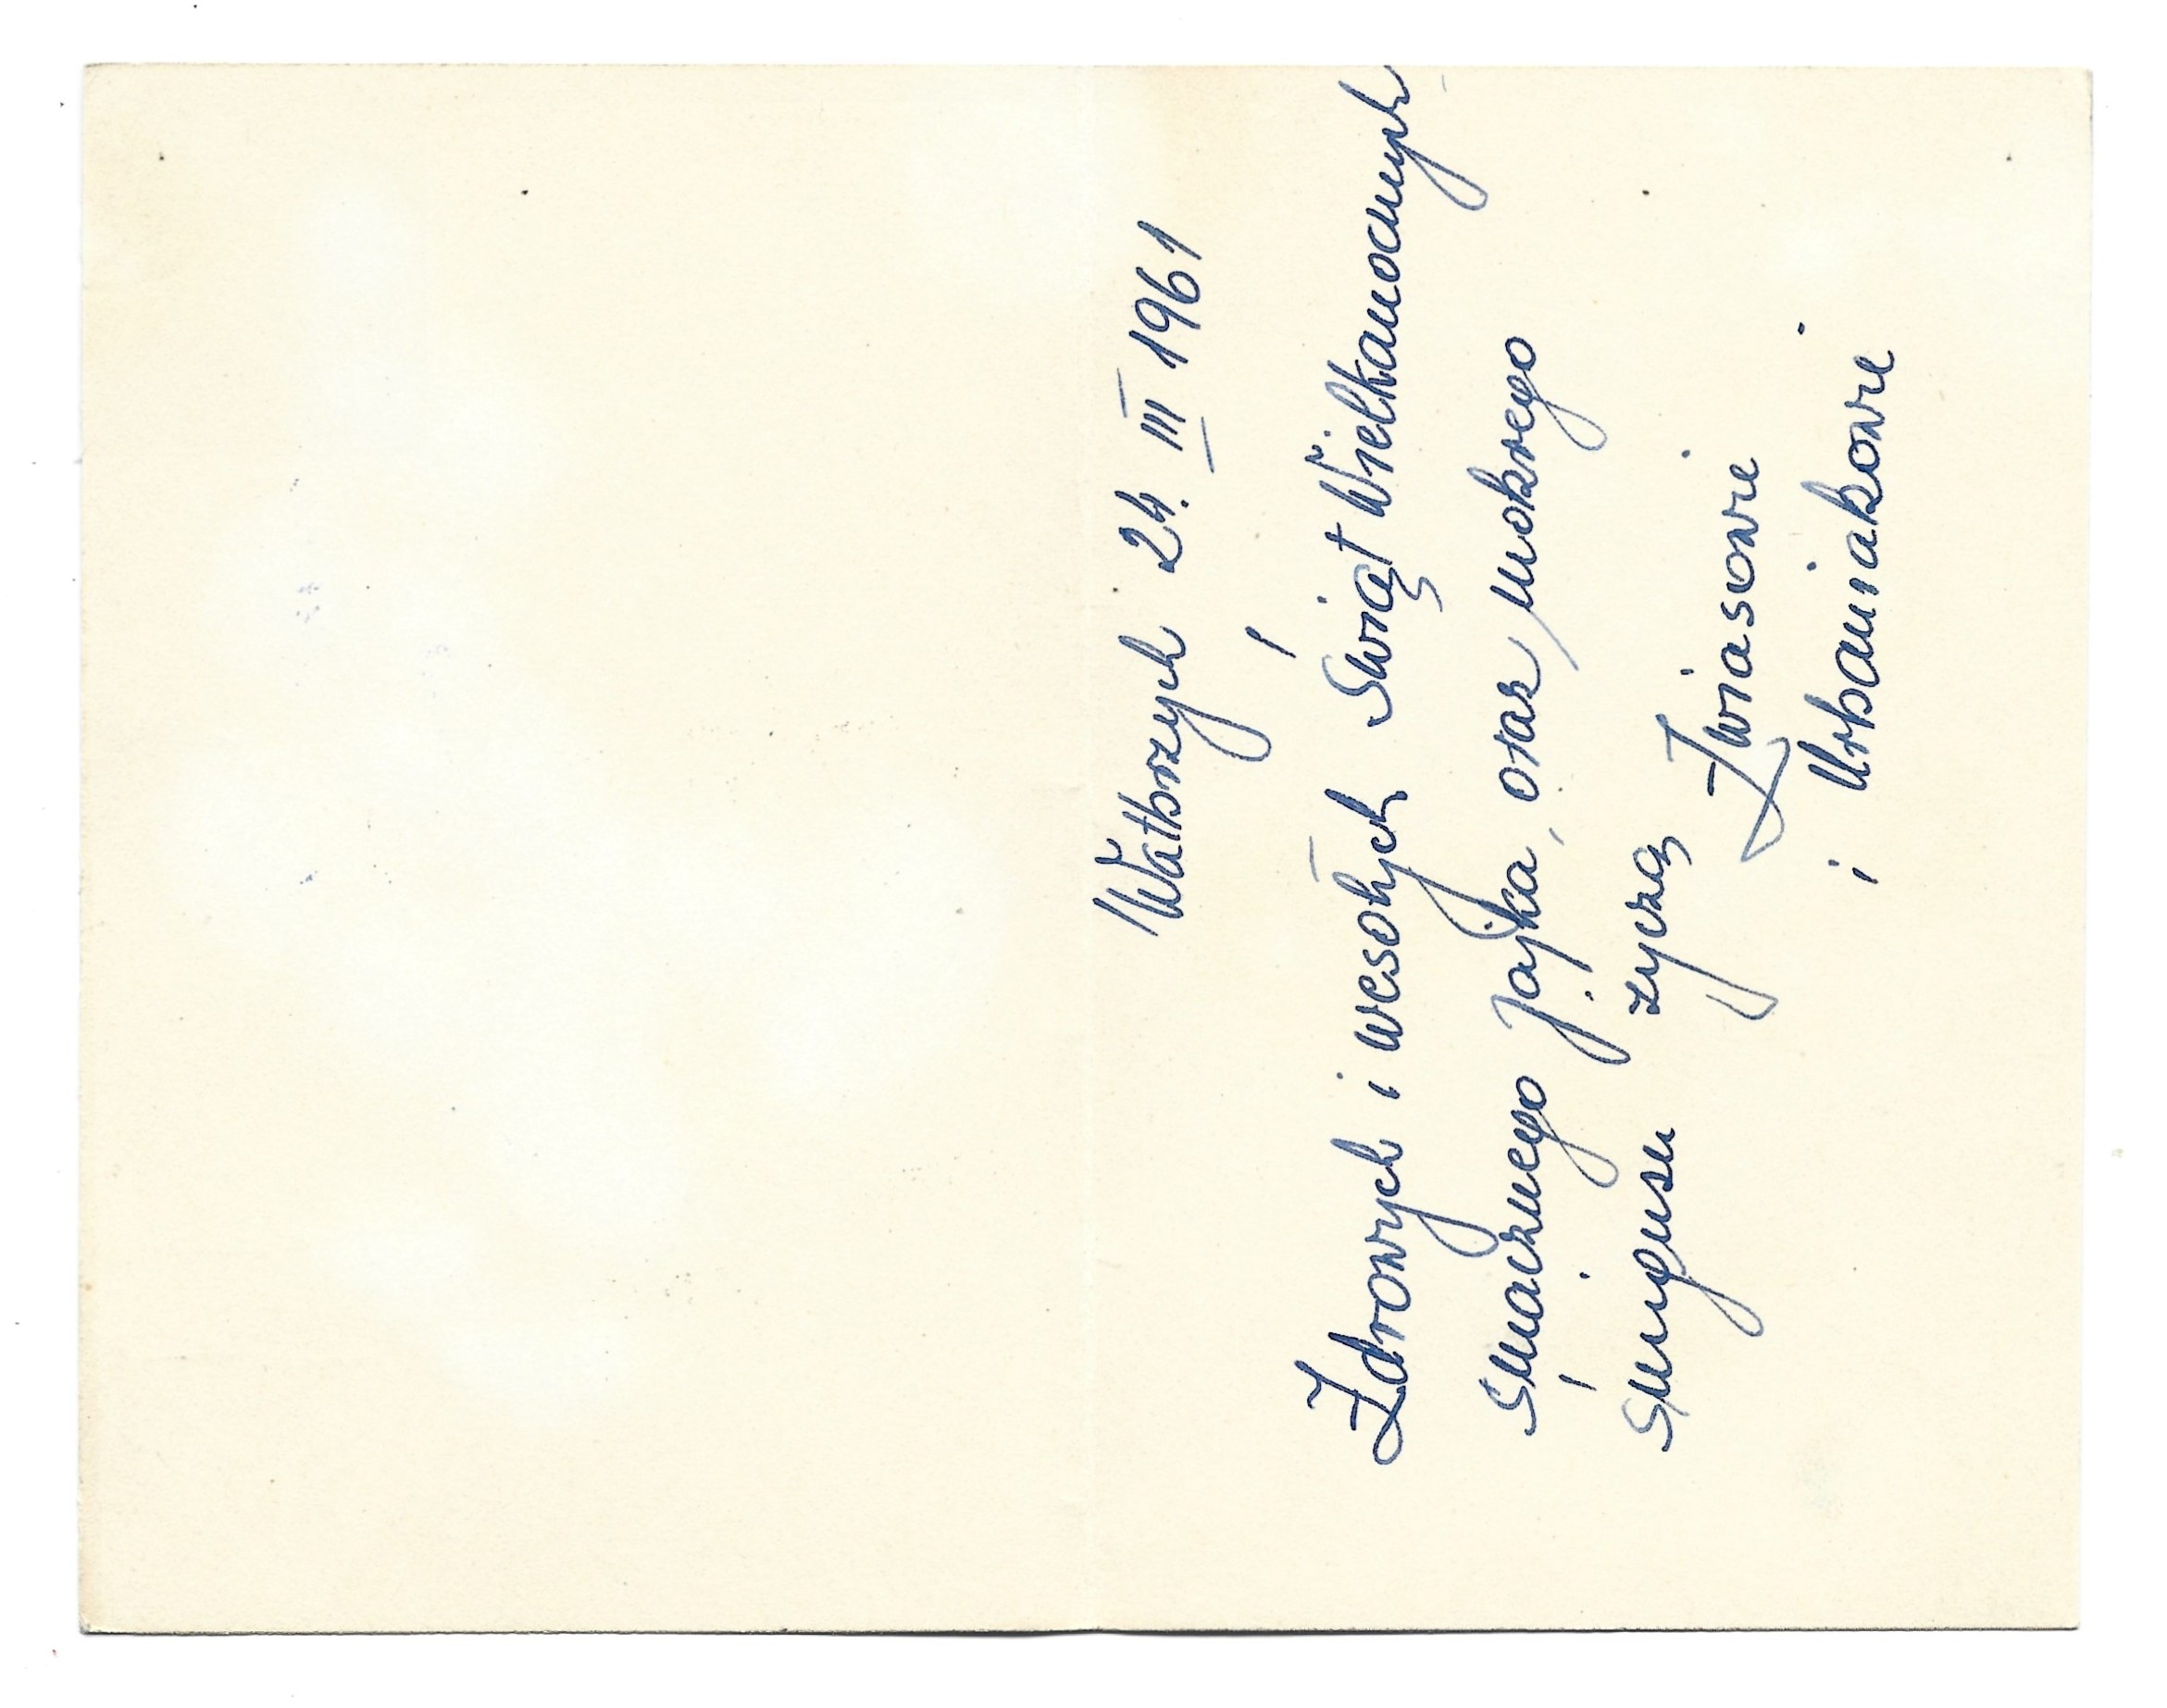 Wałbrzych 24. III 1961
Zdrowych i wesołych Świąt Wielkanocnych
smacznego jajka, oraz mokrego
śmigusu życzą
Zwiasowie
i Urbaniakowie